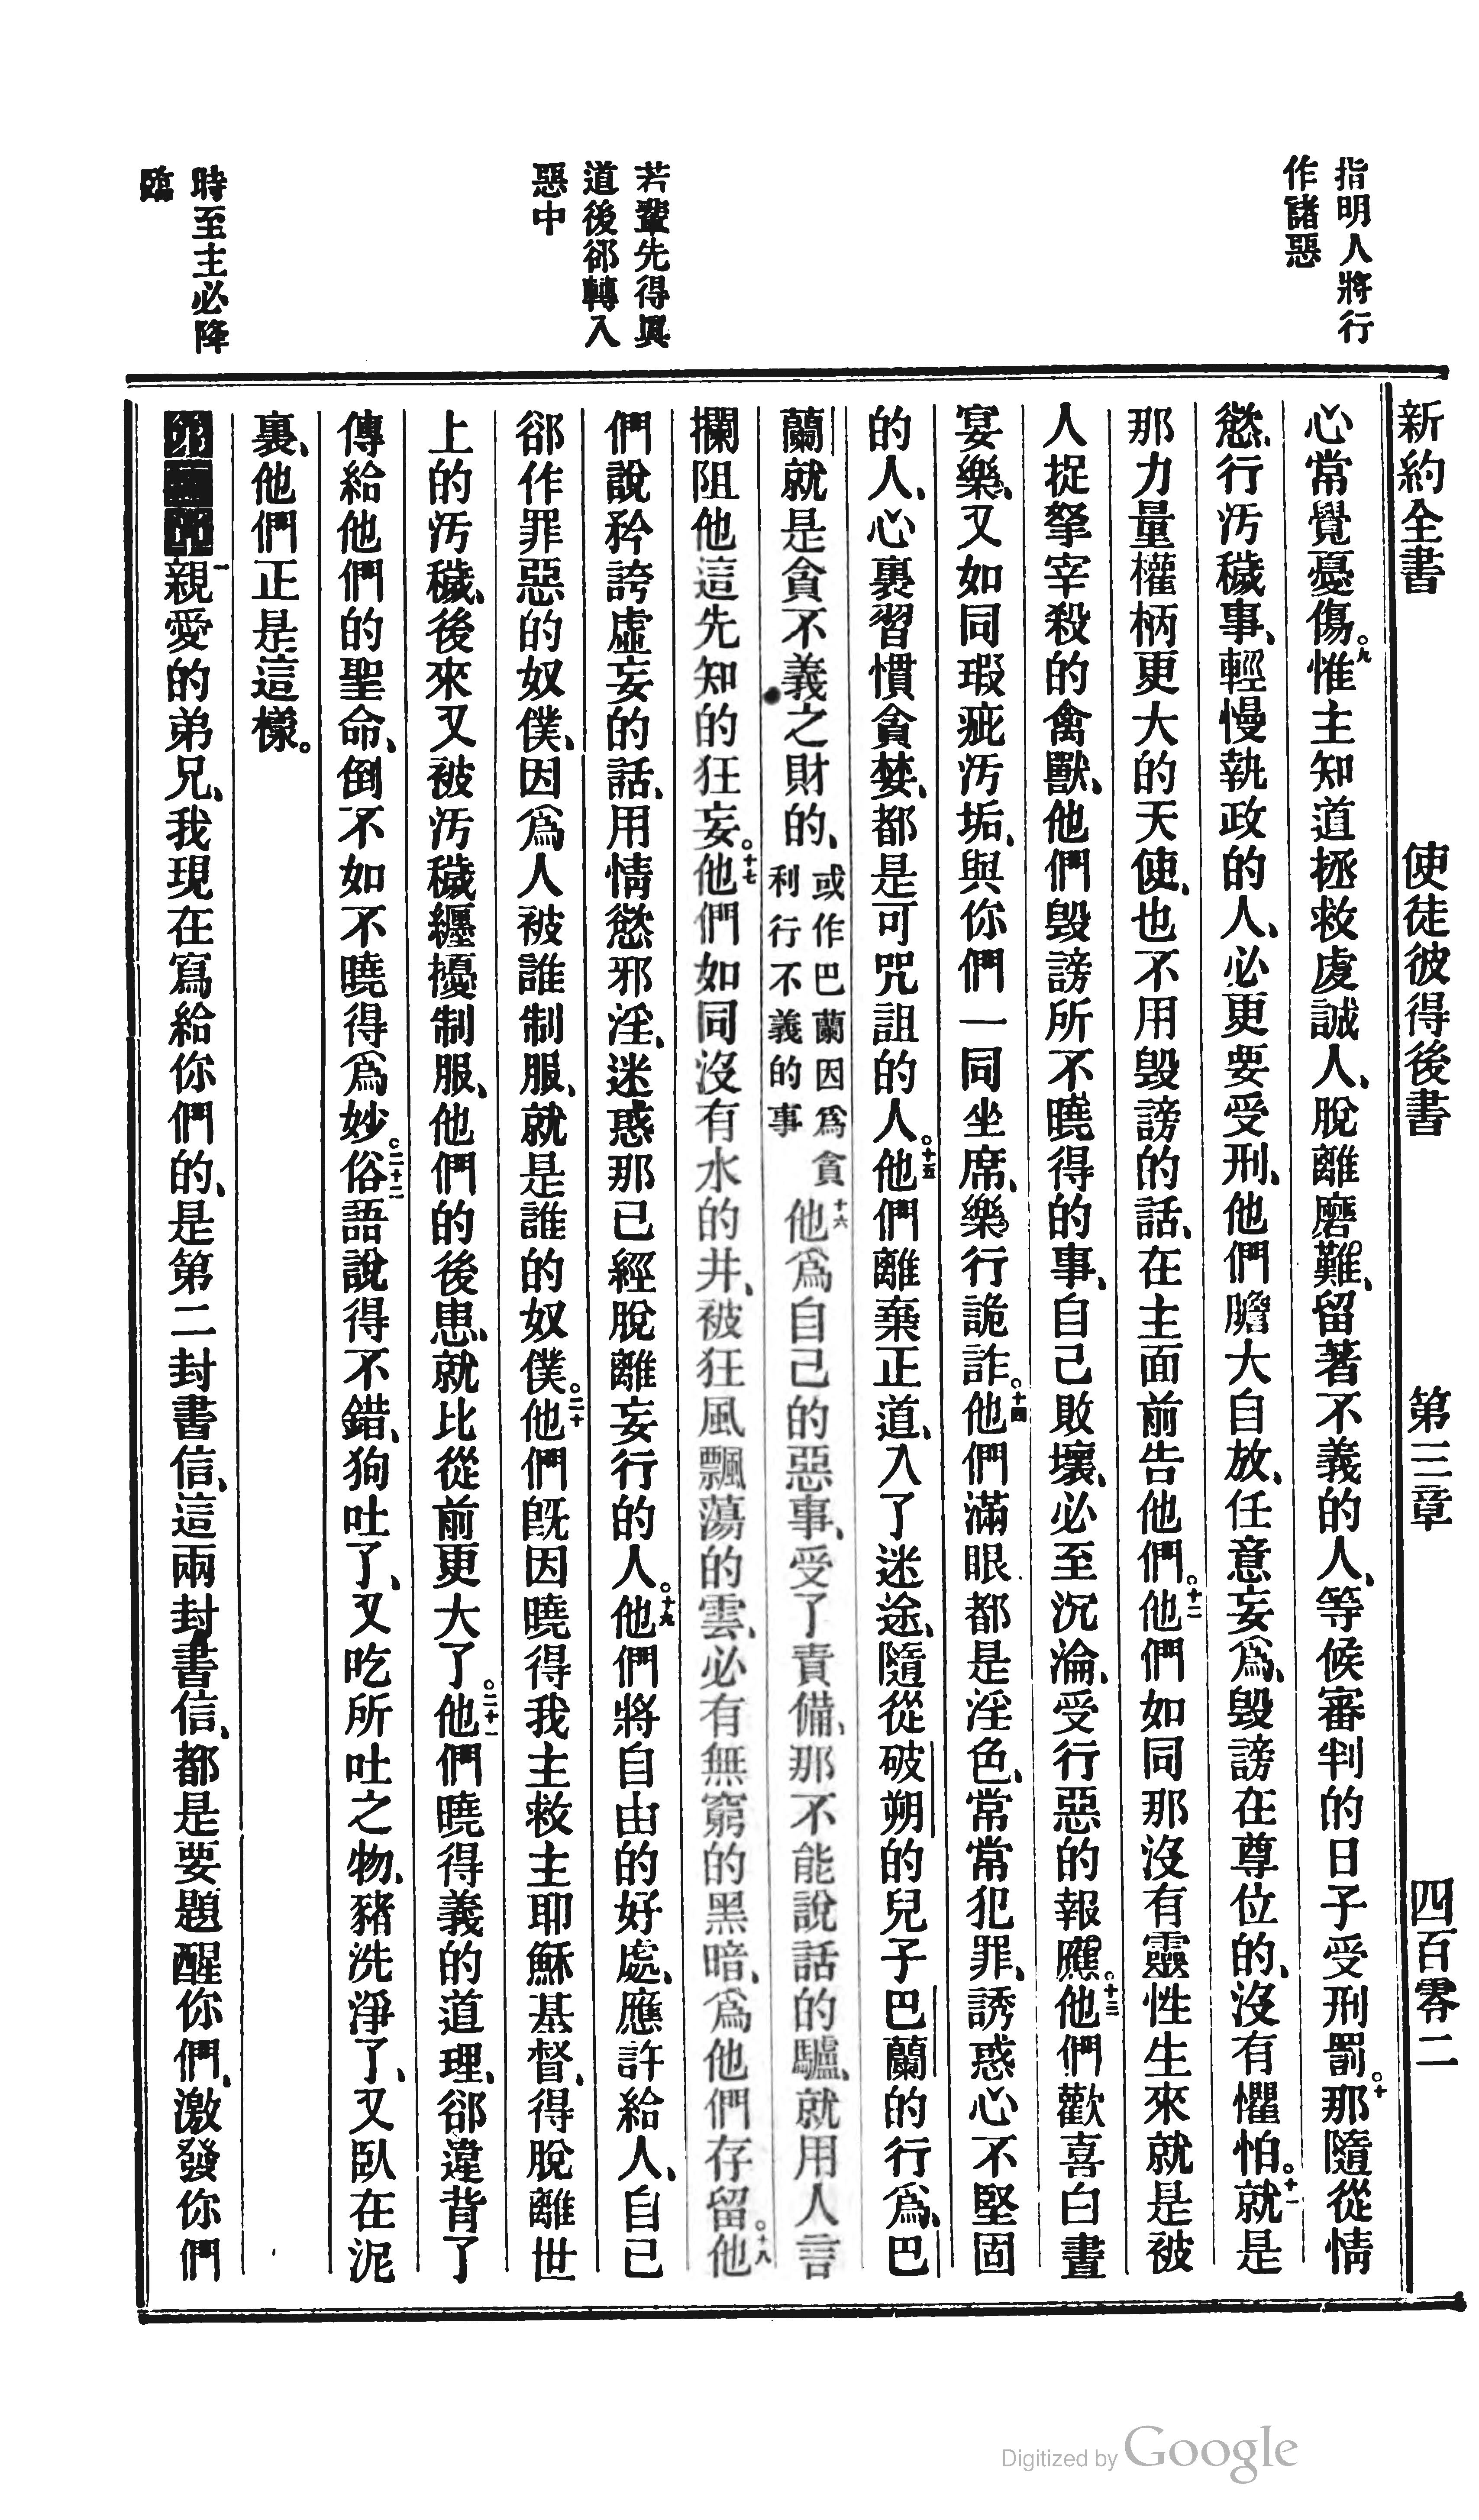 新約全書 使徒彼得後書 第三章 四百零二
指明人將行
作諸惡
若輩先得眞
道後郤轉入
惡中
時至主必降
臨
心常覺憂傷。九惟主知道拯救虔誠人、脫離磨難、留著不義的人、等候審判的日子受刑罰。十那隨從情
慾、行汚穢事、輕慢執政的人、必更要受刑、他們膽大自放、任意妄爲、毀謗在尊位的、沒有懼怕。十一就是
那力量權柄更大的天使、也不用毀謗的話、在主面前告他們。十二他們如同那沒有靈性生來就是被
人捉拏宰殺的禽獸、他們毀謗所不曉得的事、自己敗壞、必至沉淪、受行惡的報應。十三他們歡喜白晝
宴樂、又如同瑕疵汚垢、與你們一同坐席、樂行詭詐。十四他們滿眼都是淫色、常常犯罪、誘惑心不堅固
的人、心裏習慣貪婪、都是可咒詛的人。十五他們離棄正道、入了迷途、隨從破朔的兒子巴蘭的行爲、巴
蘭就是貪不義之財的、或作巴蘭因爲貪利行不義的事十六他爲自己的惡事、受了責備、那不能說話的驢、就用人言
攔阻他這先知的狂妄。十七他們如同沒有水的井、被狂風飄蕩的雲、必有無窮的黑暗、爲他們存留。十八他
們說矜誇虛妄的話、用情慾邪淫、迷惑那已經脫離妄行的人。十九他們將自由的好處、應許給人、自己
郤作罪惡的奴僕、因爲人被誰制服、就是誰的奴僕。二十他們旣因曉得我主救主耶穌基督、得脫離世
上的汚穢、後來又被汚穢纏擾制服、他們的後患、就比從前更大了。二十一他們曉得義的道理、郤違背了
傳給他們的聖命、倒不如不曉得爲妙。二十二俗語說得不錯、狗吐了、又吃所吐之物、豬洗淨了、又臥在泥
裏、他們正是這樣。
一親愛的弟兄、我現在寫給你們的、是第二封書信、這兩封書信、都是要題醒你們、激發你們
Digitized by Google